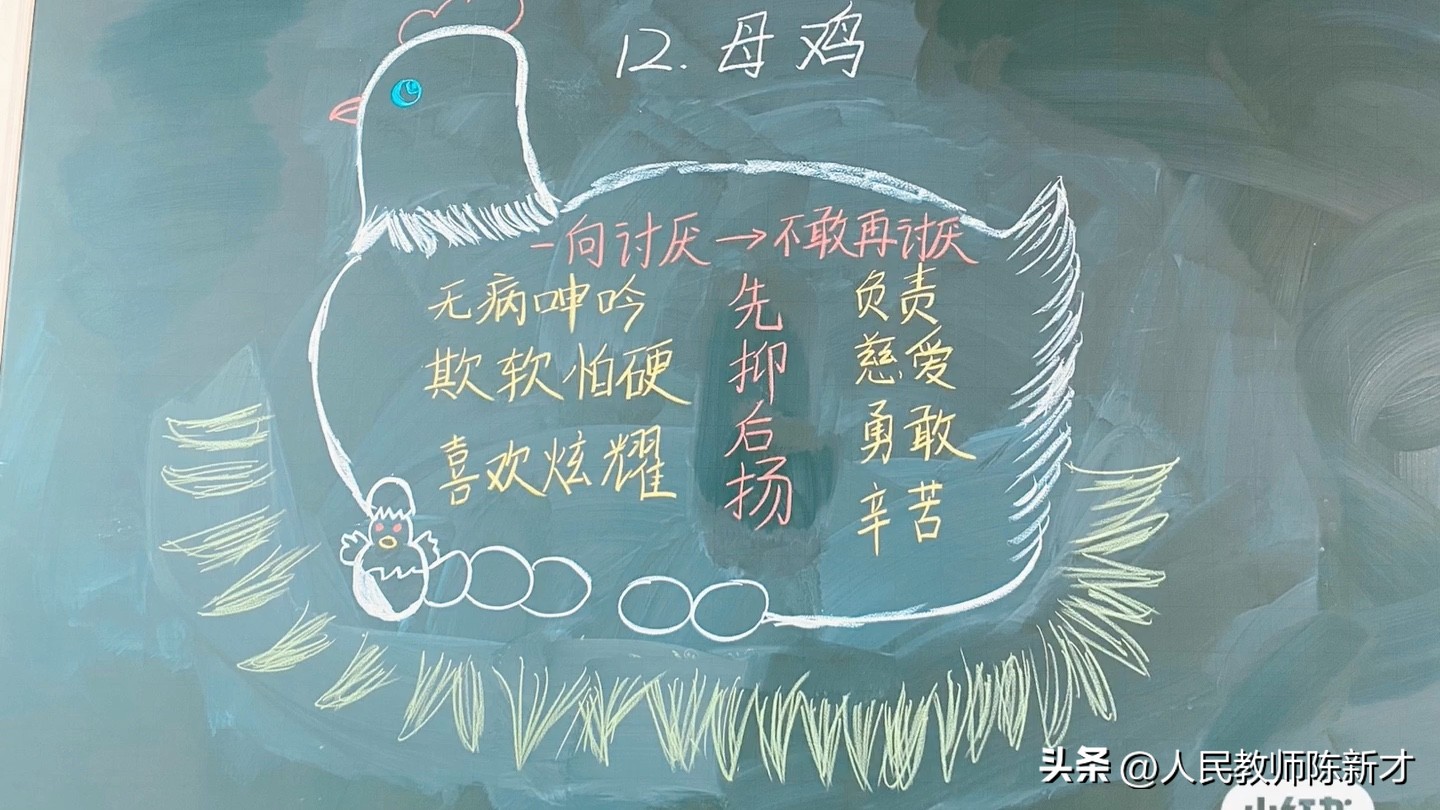 12.母鸡
一向讨厌→不敢再讨厌
无病呻吟
欺软怕硬
喜欢炫耀
先
抑
后
扬
负责
慈爱
勇敢
辛苦
头条 @人民教师陈新才